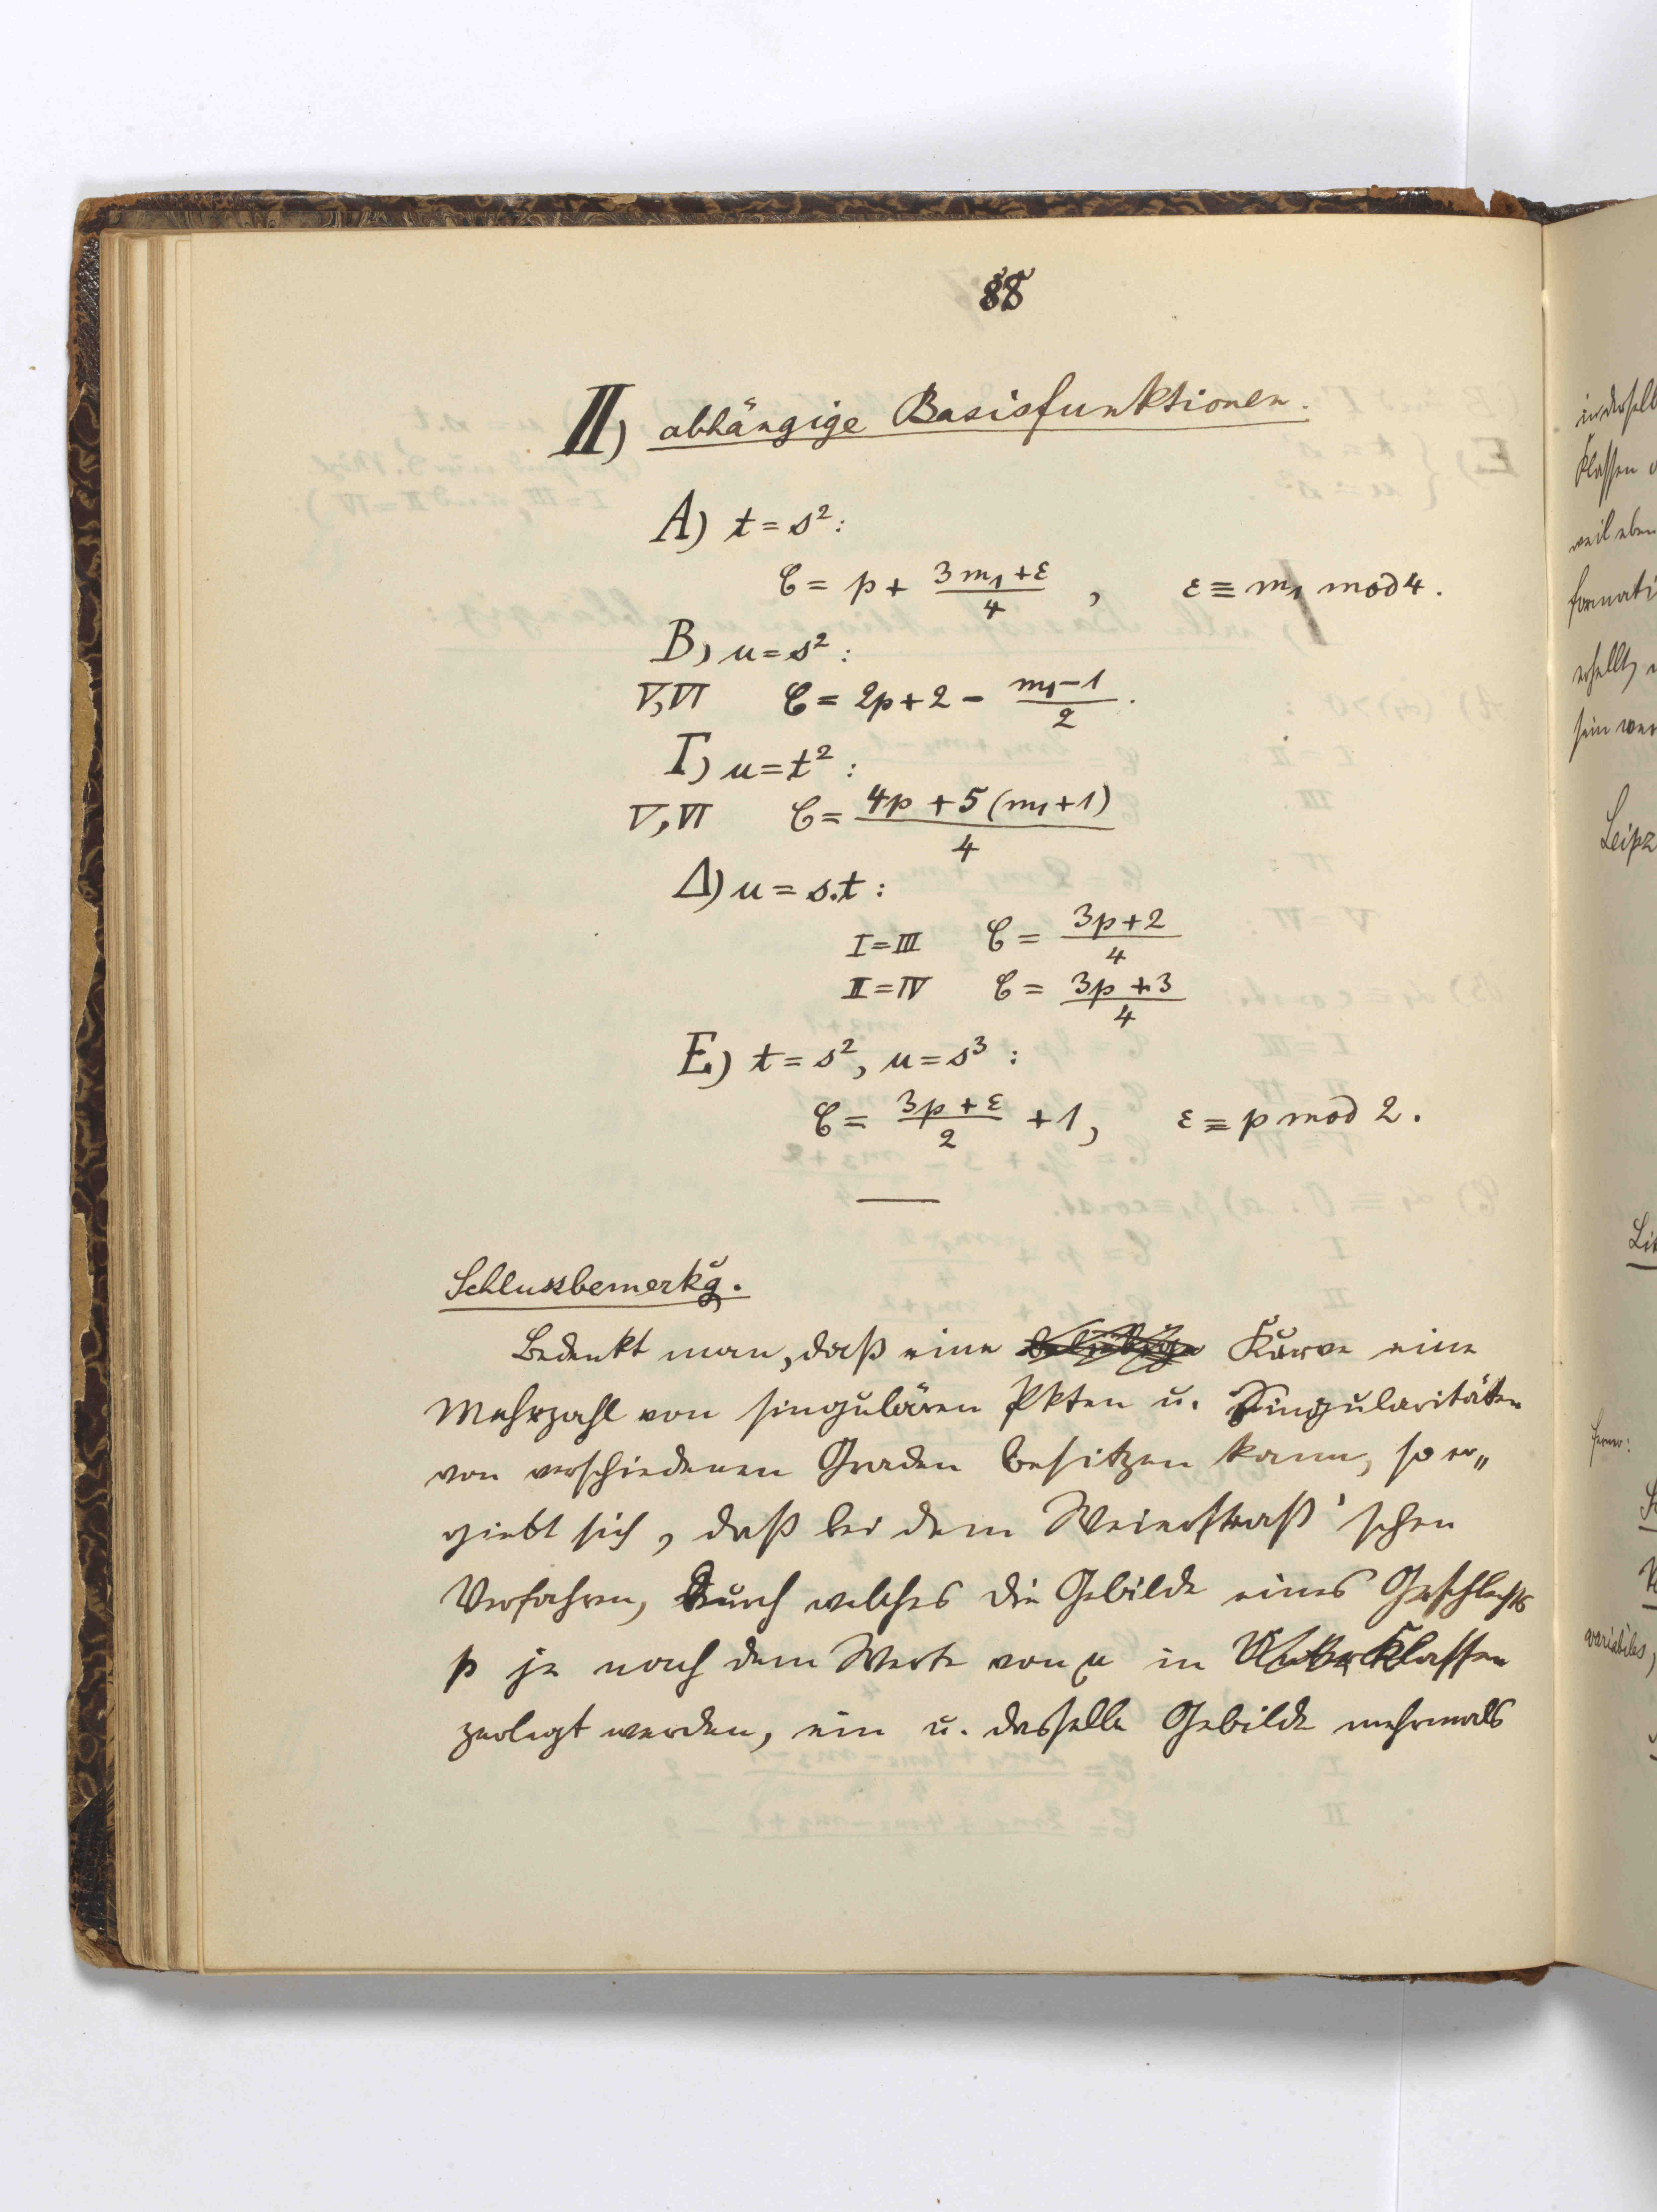 88
II) abhängige Basisfunktionen.
A) t = s²:
C = p + (3m₁+ε)/4 , ε ≡ m₁ mod 4.
B) u = s² :
V, VI C = 2p + 2 - (m₁-1)/2 .
Γ) u = t² :
V, VI C = (4p + 5(m₁+1))/4
Δ) u = s.t :
I = III C = (3p+2)/4
II = IV C = (3p+3)/4
E) t = s², u = s³ :
C = (3p+ε)/2 + 1, ε ≡ p mod 2.
Schlussbemerkg.
Bedenkt man, daß eine beliebige Kurve eine
Mehrzahl von singulären Pkten u. Singularitäten
von verschiedenen Graden besitzen kann, so er„
giebt sich, daß bei dem Weierstraß'schen
Verfahren, durch welches die Gebilde eines Geschlechts
p je nach dem Werte von μ in Klassen
zerlegt werden, ein u. dasselbe Gebilde mehrmals
in derselb
Klassen
weil eben
formati
erhellt,
sein wer
Leipz
Lit
ferner:
variabiles,